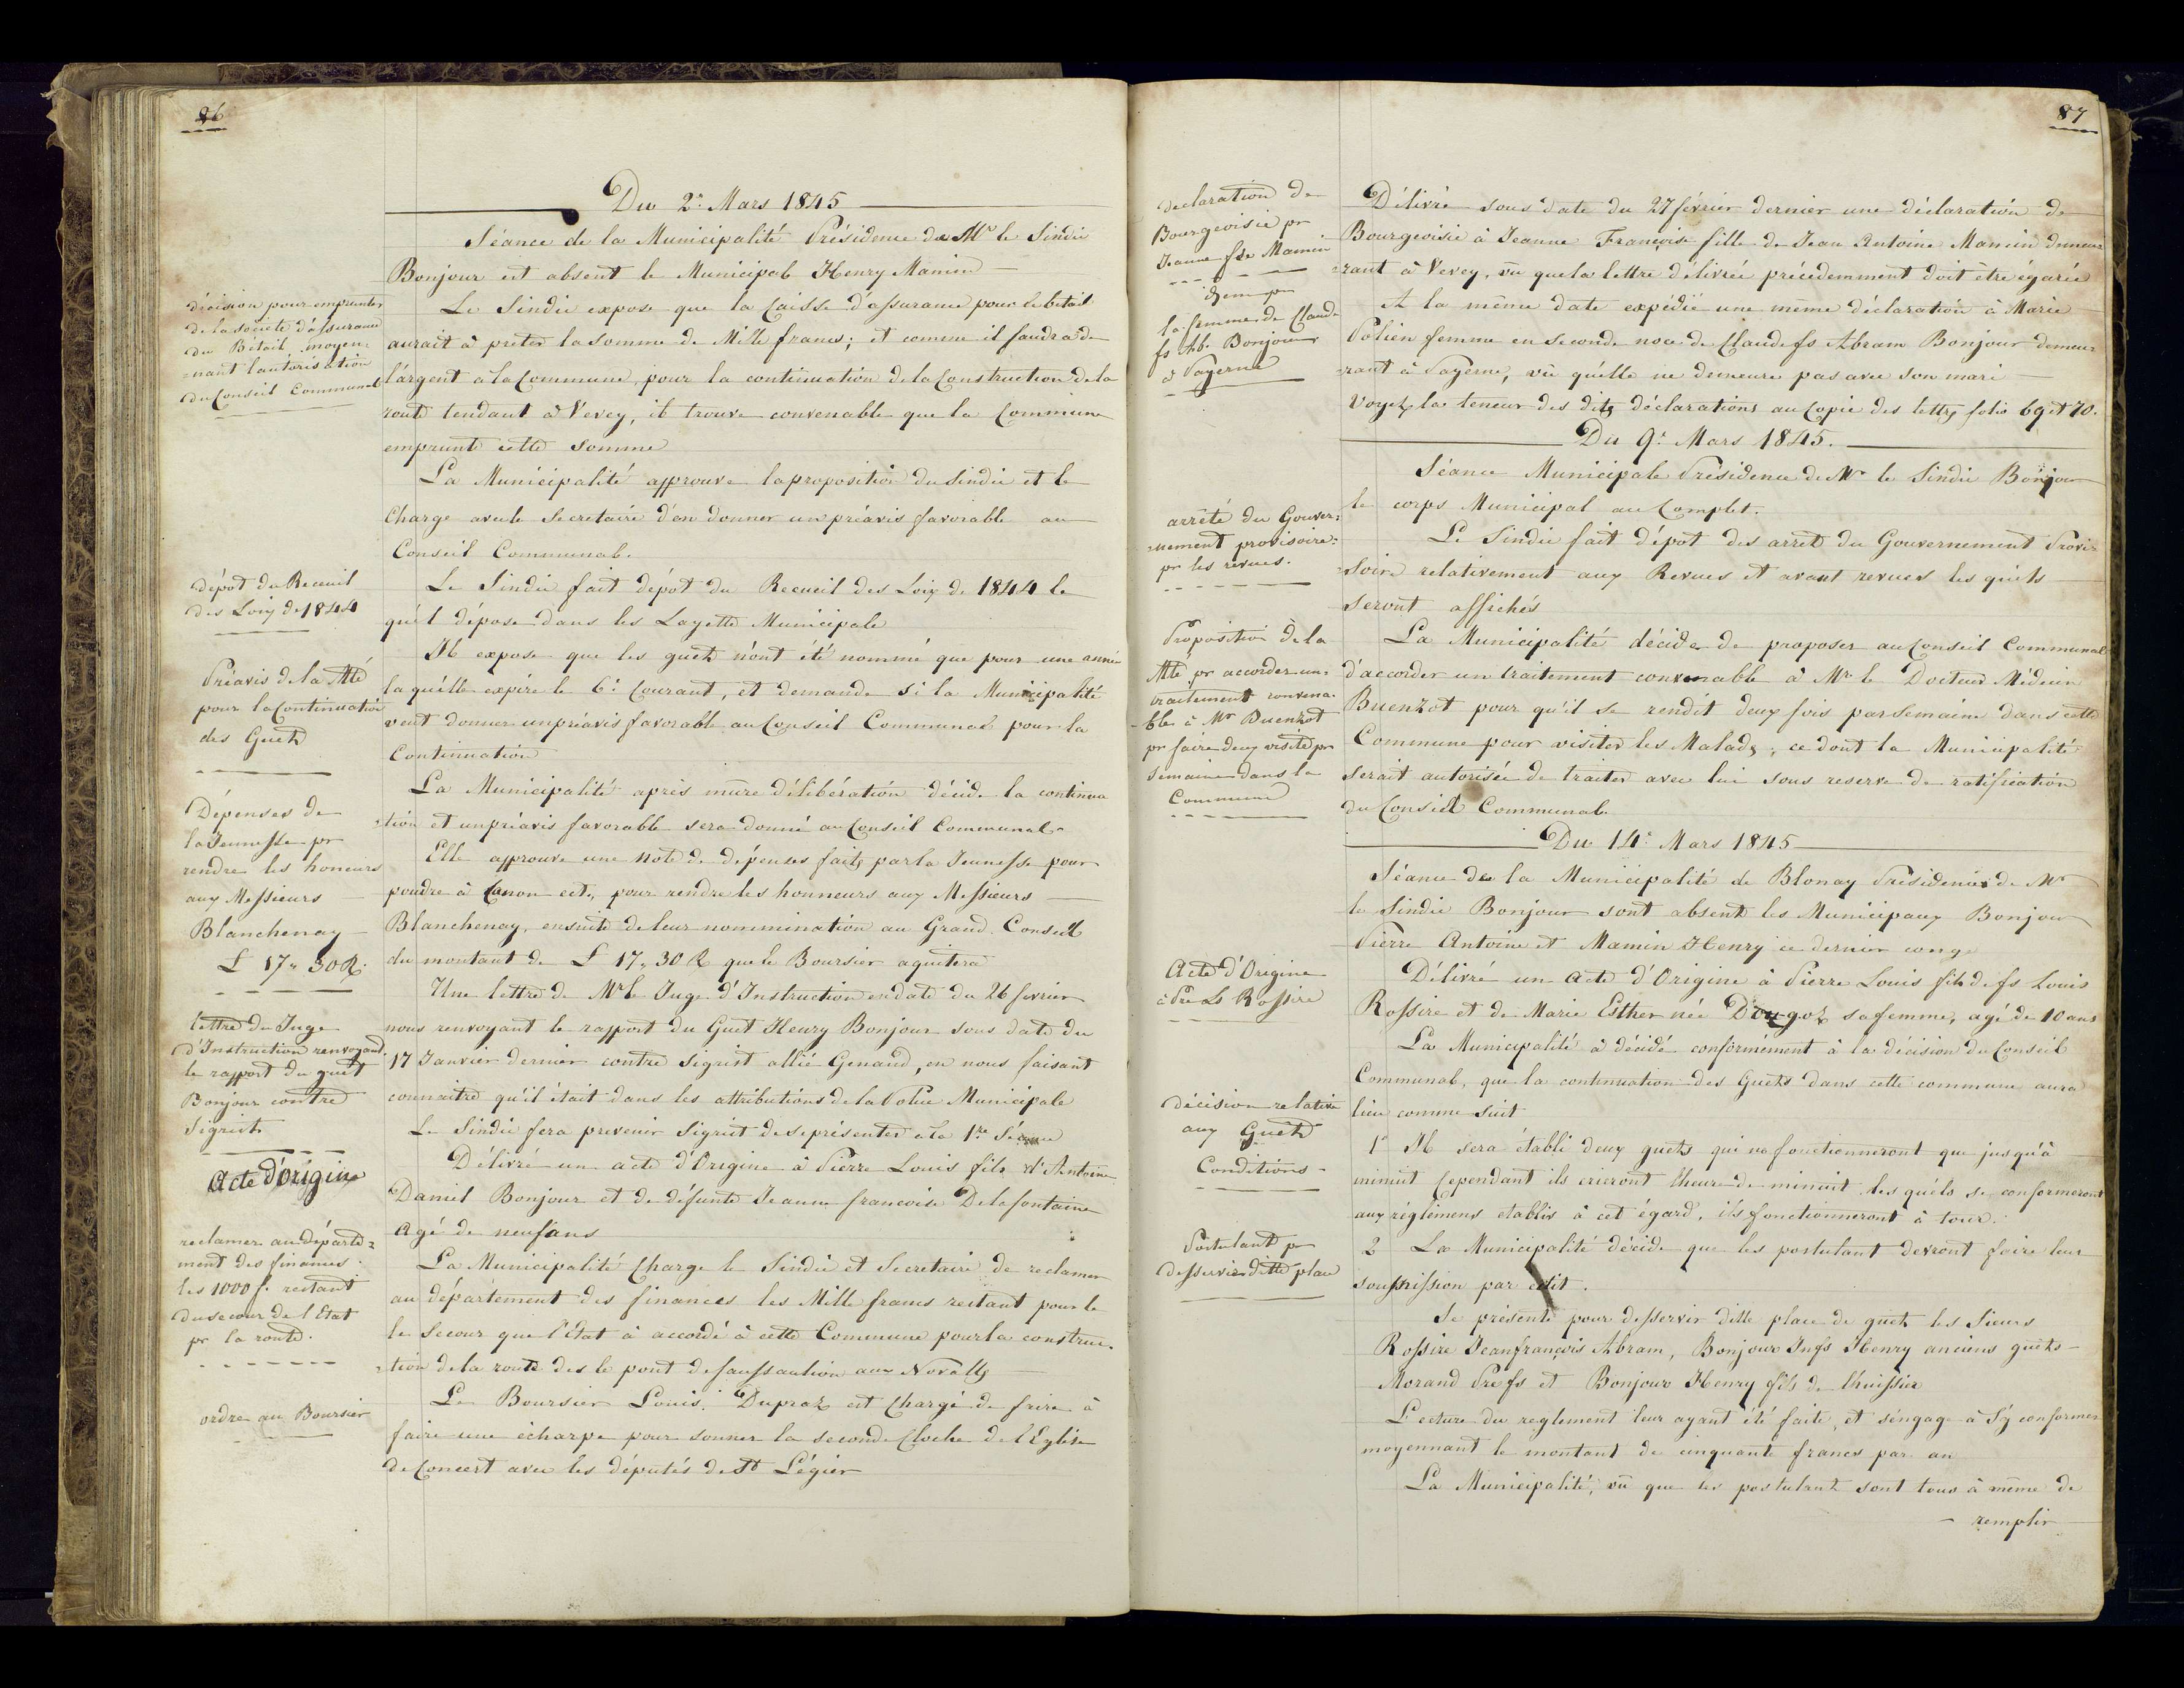 86
Du 2.e Mars 1845
Séance de la Municipalité Présidence de Mr le Sindic
Bonjour est absent le Municipal Henry Mamin
décision pour emprunter
de la société d'assurance
du Bétail moyen=
=nant l'autorisation
du Conseil Communal
Le Sindic expose que la Caisse d'assurance pour le bétail
aurait à prêter la somme de Mille francs; et comme il faudra de
l'argent a la Commune, pour la continuation de la Construction de la
route tendant à Vevey, il trouve convenable que la Commune
emprunte cette somme
La Municipalité approuve la proposition du Sindic et le
Charge avec le Secretaire d'en donner un préavis favorable au
Conseil Communal.
dépot du Receuil
des Loix de 1844
Le Sindic fait dépot du Recueil des Loix de 1844 le
qu'el dépose dans les Layette Municipale
Préavis de la Mté
pour la Continuation
des Guets
Il expose que les guets n'ont été nommé que pour une année
laqu'elle expire le 6.e Courant, et demande si la Municipalité
veut donner un préavis favorable au Conseil Communal pour la
Continuation
La Municipalité après mûre délibération décide la continua
=tion et un préavis favorable sera donné au Conseil Communal.
Dépenses de
la Jeunesse pr
rendre les honeurs
aux Messieurs
Blanchenay
£ 17„ 30 R.
Elle approuve une note de dépenses faits par la Jeunesse pour
poudre à Canon ect, pour rendre les honneurs aux Messieurs
Blanchenay, ensuite de leur nommination au Grand Conseil
du montant de £ 17„ 30 R que le Boursier aquitera
lettre du Juge
d'Instruction renvoyant
le rapport du guet
Bonjour contre
Sigrist
Une lettre de Mr le Juge d'Instruction en date du 26 fevrier
nous renvoyant le rapport du Guet Henry Bonjour sous date du
17 Janvier dernier contre Sigrist allié Genand, en nous faisant
connaitre qu'il était dans les attributions de la Police Municipale
Le Sindic fera prevenir Sigrist de se présenter a la 1re Séance
Acte d'origine
Délivré un acte d'Origine à Pierre Louis fils d'Antoine
Daniel Bonjour et de défunte Jeanne francoise Delafontaine
agé de neuf ans
reclamer au départe=
ment des finances
les 1000 f. restant
du secour de l'Etat
pr la route.
La Municipalité Charge le Sindic et Secretaire de reclamer
au département des finances les Mille francs restant pour le
le Secour que l'Etat à accordé à cette Commune pour la construc.
=tion de la route des le pont de saussaution aux Novalles
ordre au Boursier
Le Boursier Louis Dupraz est Chargé de frire à
faire une écharpe pour sonner la seconde Cloche de l'Eglise
de Concert avec les députés de St Légier
87
declaration de
Bourgeoisie pr
Jeanne fse Mamin
Idem pr
la femme de Claude
fs Ab. Bonjour
à Payerne
Délivré sous date du 27 février dernier une déclaration de
Bourgeoisie à Jeanne Françoise fille de Jean Antoine Mamin demeu=
=rant à Vevey, vu que la lettre délivrée précédemment doit être égarée
A la même date expédié une même déclaration à Marie
Polien femme en seconde noce de Claude fs Abram Bonjour demeu=
=rant à Payerne, vû qu'elle ne demeure pas avec son mari
Voyez la teneur des dits déclarations au Copie des lettres folio 69 et 70.
Du 9.e Mars 1845.
Séance Municipale Présidence de Mr le Sindic Bonjour
le corps Municipal au Complet.
arrêté du Gouver=
=nement provisoire
pr les revues.
Le Sindic fait dépot des arret du Gouvernement Provi=
=soire relativement aux Revues et avant revues les quels
seront affichés
Proposition de la
Mté pr accorder un
traitement convena.
=ble à Mr Buenzot
pr faire deux visite pr
semaine dans la
Commune
La Municipalité décide de proposer au Conseil Communal
d'accorder un traitement convenable à Mr le Docteur Médecin
Buenzot pour qu'il se rendit deux fois par Semaine dans cette
Commune pour visiter les Malades, ce dont la Municipalité
serait autorisée de traiter avec lui sous reserve de ratification
du Conseil Communal
Du 14.e Mars 1845
Séance de la Municipalité de Blonay Présidence de Mr
le Sindic Bonjour sont absents les Municipaux Bonjour
Pierre Antoine et Mamin Henry ce dernier congé
Acte d'Origine
à Pre Ls Rossire
Délivré un acte d'Origine à Pierre Louis fils de fs Louis
Rossire et de Marie Esther née Dougoz sa femme, agé de 10 ans
décision relative
aux Guets
Conditions
La Municipalité à décidé conformément à la décision du Conseil
Communal, que la continuation des Guets dans cette commune aura
lieu comme suit
1° Il sera établi deux guets qui ne fonctionneront que jusqu'à
minuit Cependant ils crieront l'heure de minuit les quels se conformeront
aux réglémens etablis à cet égard, ils fonctionneront à tour.
Postulant pr
desservir ditte place
2 La Municipalité décide que les postulant devront faire leur
soumission par edit.
Se présente pour desservir ditte place de guets les Sieurs
Rossire Jean françois Abram, Bonjour Jn fs Henry anciens guets
Morand Pre fs et Bonjour Henry fils de l'huissier
Lecture du reglement leur ayant été faite, et s'engage à s'y conformer
moyennant le montant de cinquante francs par an
La Municipalité, vû que les postulant sont tous à même de
remplir